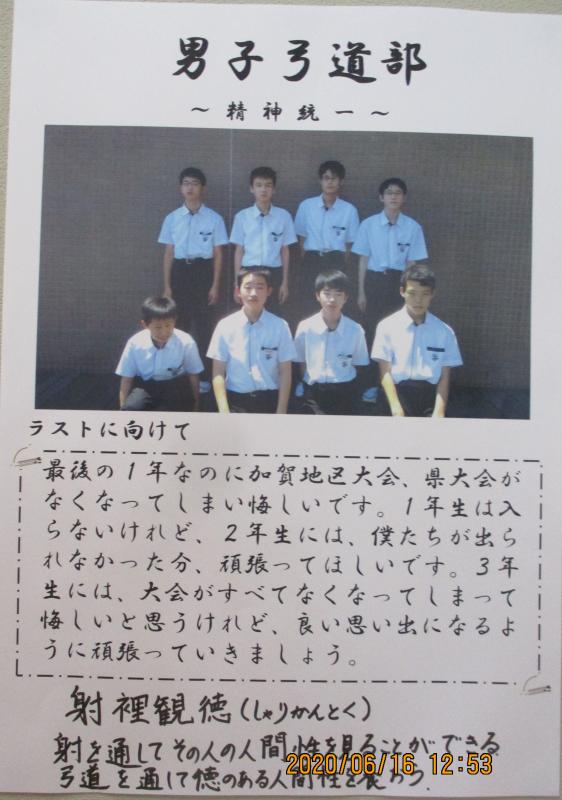 男子弓道部
～精神統一～
ラストに向けて
最後の1年なのに加賀地区大会、県大会が
なくなってしまい悔しいです。1年生は入
らないけれど、2年生には、僕たちが出ら
れなかった分、頑張ってほしいです。3年
生には、大会がすべてなくなってしまって
悔しいと思うけれど、良い思い出になるよ
うに頑張っていきましょう。
射裡観徳(しゃりかんとく)
射を通してその人の人間性を見ることができる
弓道を通して徳のある人間性を養おう.
2020/06/16 12:53